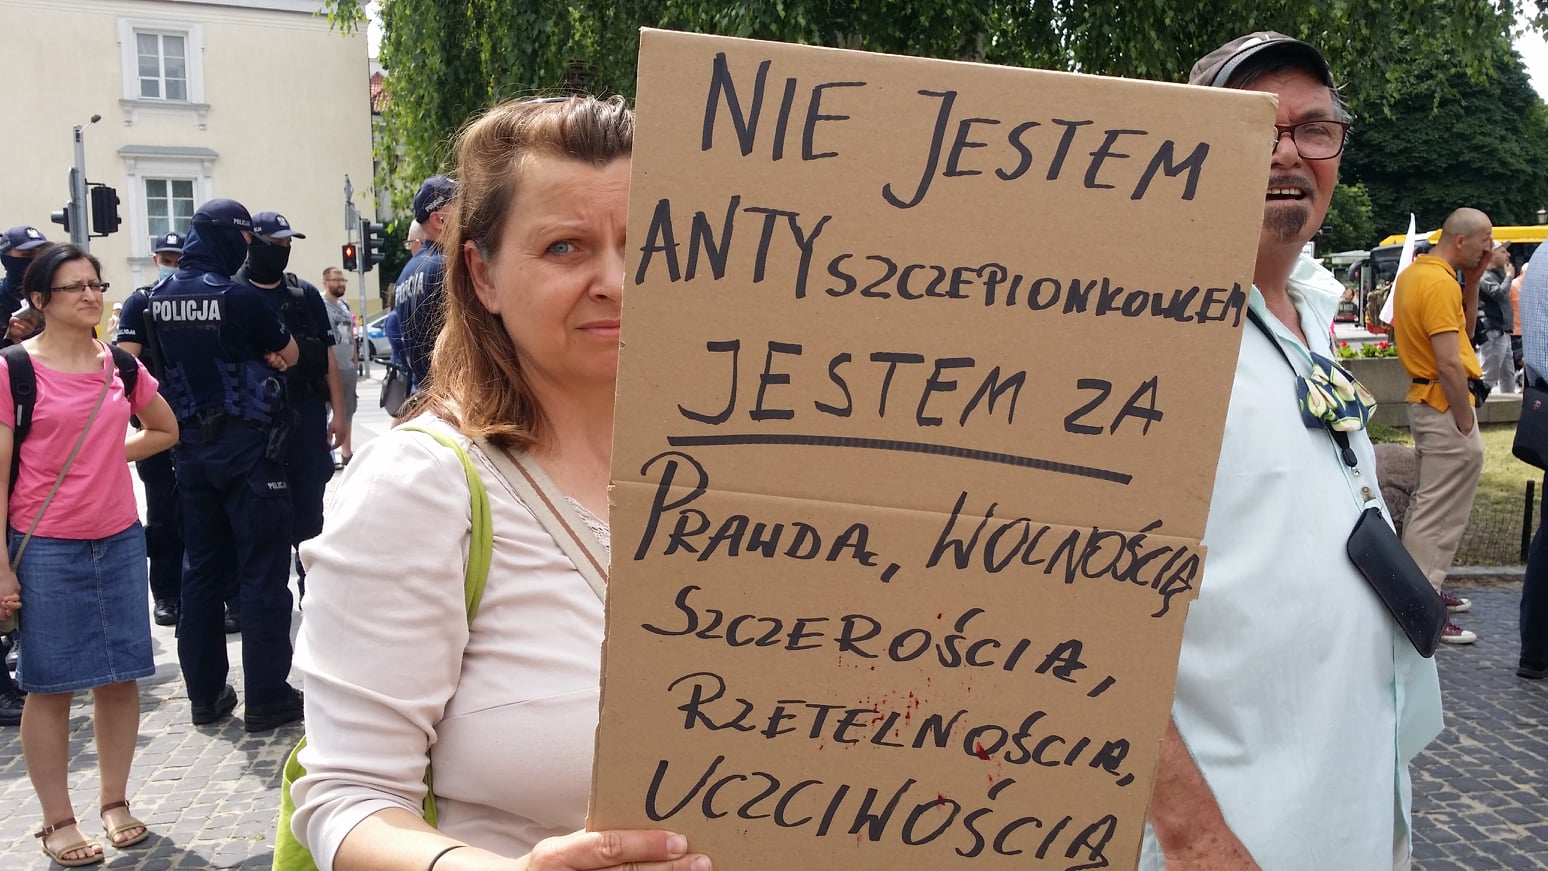 NIE JESTEM
ANTYSZCZEPIONKOWCEM
JESTEM ZA
PRAWDĄ, WOLNOŚCIĄ
SZCZEROŚCIĄ,
RZETELNOŚCIĄ,
UCZCIWOŚCIĄ
POLICJA
POLICJA